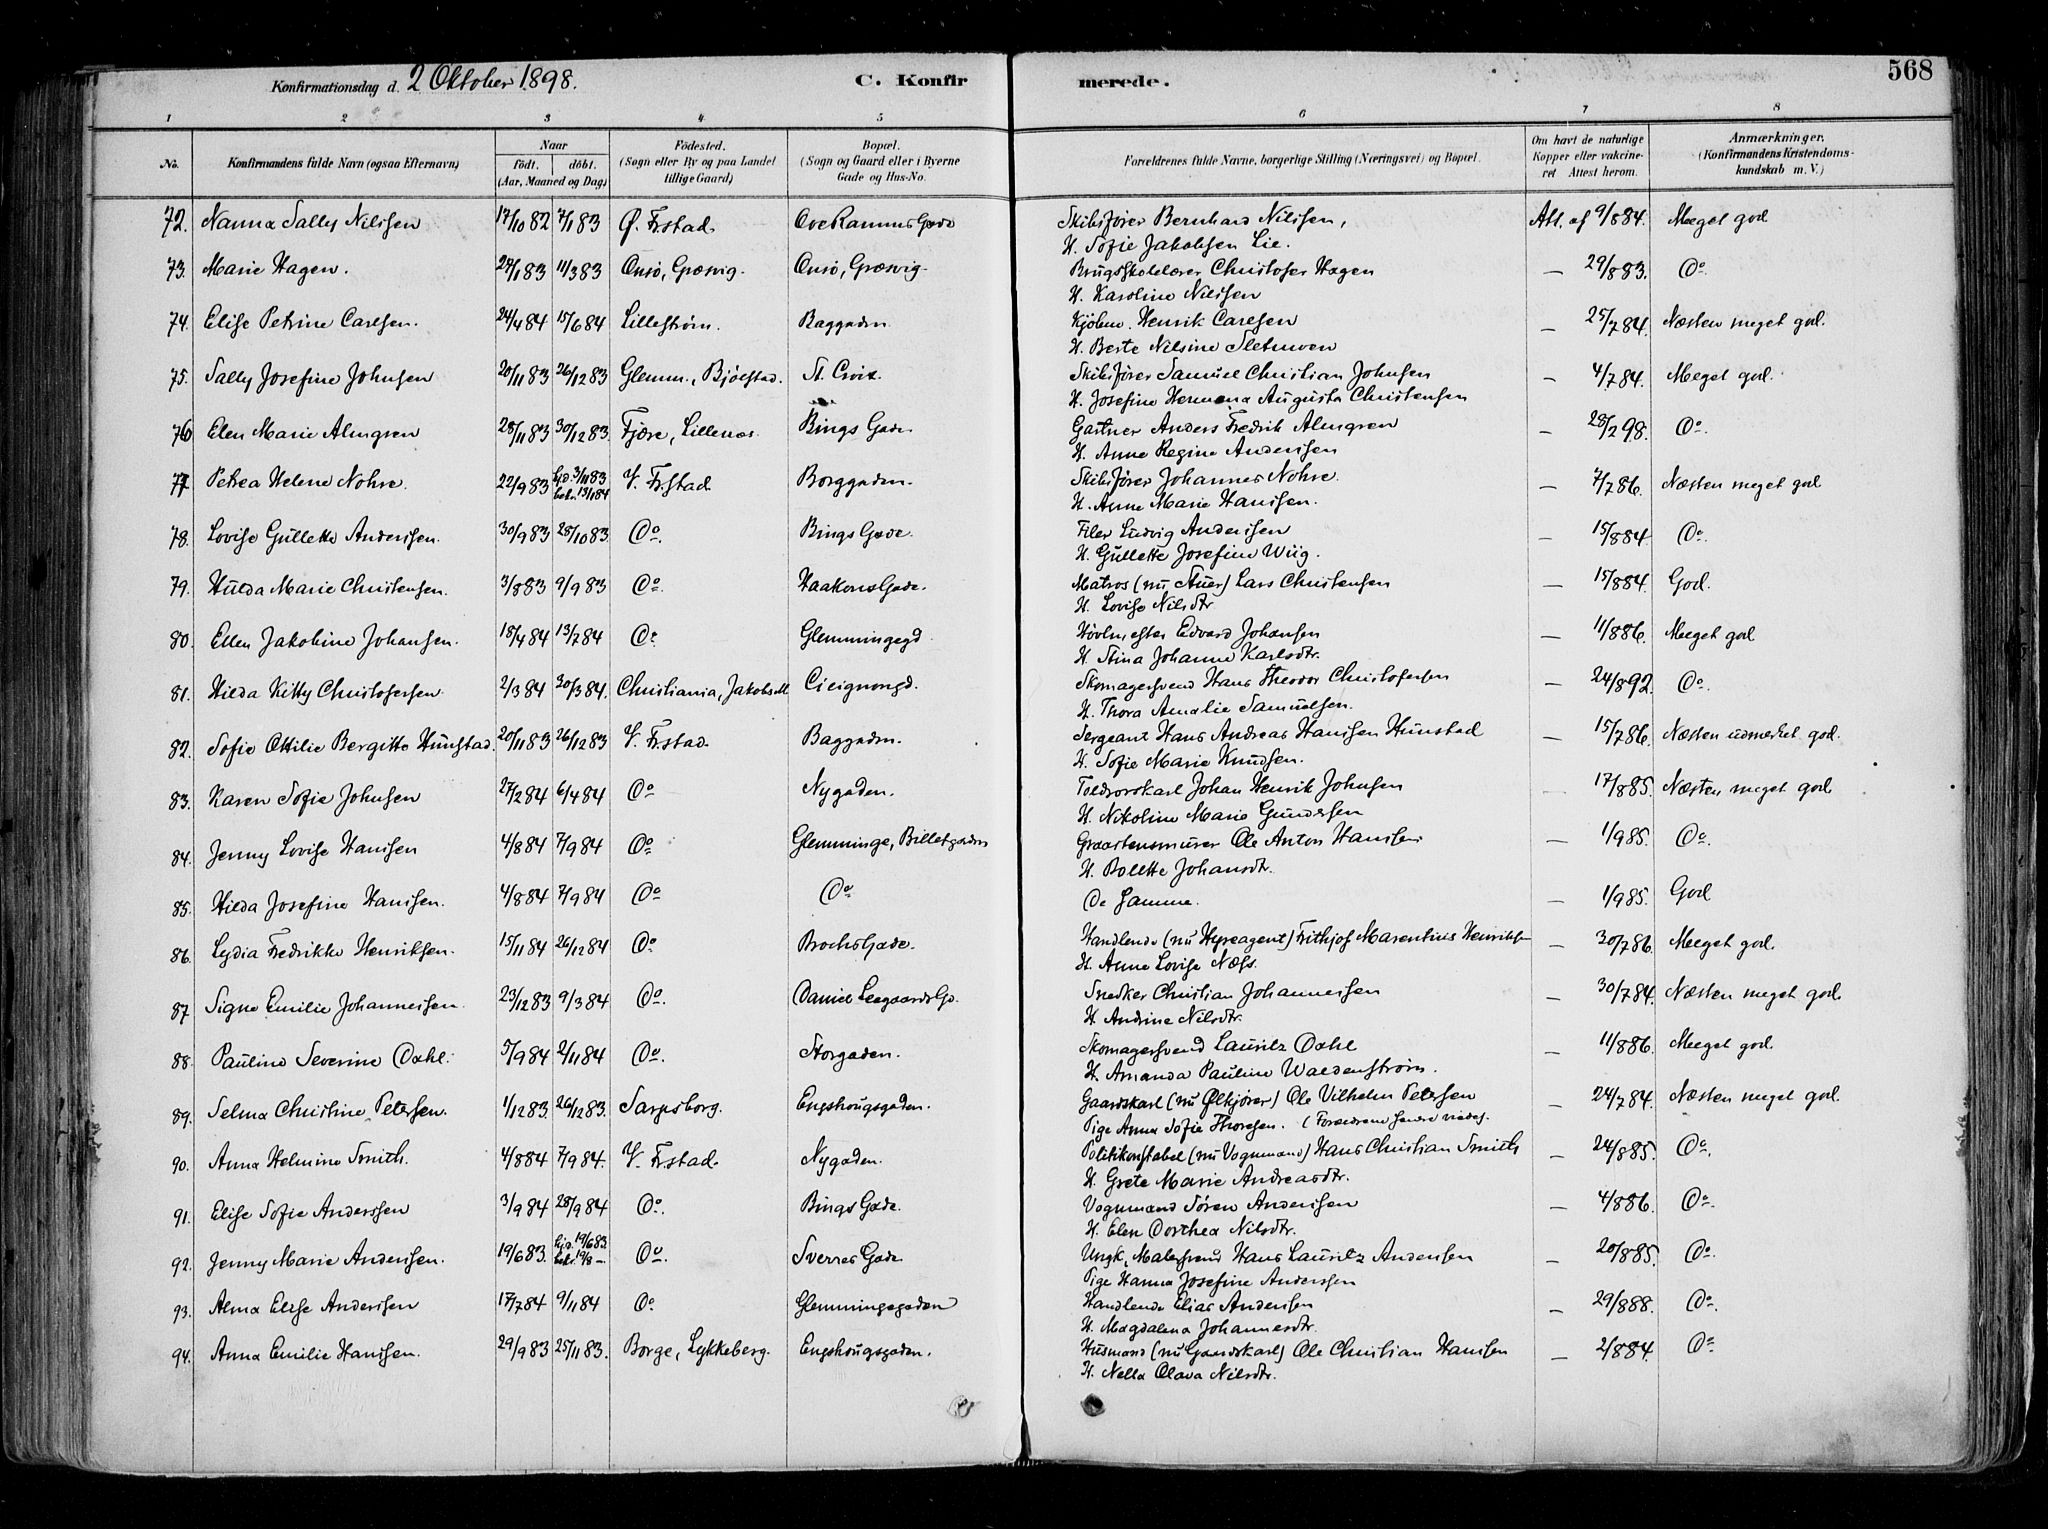 568
Konfirmationsdag d. 2 Oktober 1898.
C. Konfirmerede.
1 2 3 4 5 6 7 8
No.
Konfirmandens fulde Navn (ogsaa Efternavn)
Naar
födt. döbt.
(Aar, Maaned og Dag)
Födested.
(Sogn eller By og paa Landet
tillige Gaard)
Bopæl.
(Sogn og Gaard eller i Byerne
Gade og Hus-No.
Forældrenes fulde Navne, borgerlige Stilling (Næringsvei) og Bopæl.
Om havt de naturlige
Kopper eller vakcine-
ret Attest herom.
Anmærkninger.
(Konfirmandens Kristendoms-
kundskab m. V.)
72. Nanna Sally Nilssen 17/10 82 7/1 83 Ø. Fr.stad Ove Ramms Gade Skibsfører Bernhard Nilssen, Att. af 9/8 84. Meget god
H. Sofie Jakobsen Lie.
73. Marie Hagen. 24/1 83 11/3 83 Onsø, Græsvig. Onsø, Græsvig. Brugsskolelærer Christofer Hagen — 29/8 83. Do.
H. Karoline Nilssen
74. Elise Petrine Carlsen. 24/4 84 15/6 84 Lillestrøm. Baggaden Kjøbm. Henrik Carlsen — 25/7 84. Næsten meget god.
H. Berte Nilsine Sletmoen
75. Sally Josefine Johnsen 20/11 83 26/12 83 Glemm., Bjølstad. St. Croix. Skibsfører Samuel Christian Johnsen — 4/7 84. Meget god.
H. Josefine Hermana Augusta Christensen
76 Elen Marie Almgren 28/11 83 30/12 83. Fjære, Lillenes. Bings Gade Gartner Anders Fredrik Almgren — 28/2 98. Do.
H. Anne Regine Anderssen
77. Petrea Helene Nohre. 22/9 83 hjd. 3/11 83 V. Fr.stad Borggaden. Skibsfører Johannes Nohre. — 7/7 86. Næsten meget god
bekr. 13/1 84
H. Anne Marie Hanssen.
78. Lovise Gullette Anderssen. 30/9 83 28/10 83. Do. Bings Gade. Filer Ludvig Anderssen — 15/8 84. Do.
H. Gullette Josefine Wiig.
79. Hulda Marie Christensen. 3/8 83 9/9 83 Do. Haakons Gade. Matros (nu Stuer) Lars Christensen — 15/8 84. God.
H. Lovise Nilsdtr.
80. Ellen Jakobine Johansen. 18/4 84 13/7 84 Do. Glemmingegd. Høvlmester Edvard Johansen — 11/8 86. Meget god
H. Stina Johanne Karlsdtr.
81. Hilda Kitty Christofersen. 2/3 84 30/3 84. Christiania, Jakobs M Cicignongd. Skomagersvend Hans Theodor Christofersen — 24/8 92. Do.
H. Thora Amalie Samuelsen.
82. Sofie Otilie Bergitte Hunstad. 20/11 83 26/12 83 V. Fr.stad. Baggaden. Sergeant Hans Andreas Hanssen Hunstad — 15/7 86. Næsten udmerket god.
H. Sofie Marie Knudsen.
83. Karen Sofie Johnsen 27/2 84 6/4 84 Do Nygaden. Toldrorskarl Johan Henrik Johnsen — 17/8 85. Næsten meget god
H. Nikoline Marie Gundersen
84. Jenny Lovise Hanssen 4/8 84 7/9 84 Do Glemminge, Billetgaden Graastensmurer Ole Anton Hanssen — 1/9 85. Do.
H. Bolette Johansdtr.
85. Hilda Josefine Hanssen. 4/8 84 7/9 84 Do Do De samme. — 1/9 85. God
86. Lydia Fredrikke Henriksen. 15/11 84 26/12 84 Do. Brochs Gade. Handlende (nu Hyreagent) Frithjof Marentius Henriksen — 30/7 86. Meget god.
H. Anne Lovise Næss.
87. Signe Emilie Johannessen. 23/12 83 9/3 84 Do. Daniel Leegaards Gd. Snedker Christian Johannessen — 30/7 84. Næsten meget god.
H. Andrine Nilsdtr.
88. Pauline Severine Dahl. 5/9 84 2/11 84 Do. Storgaden. Skomagersvend Lauritz Dahl — 11/8 86. Meget god.
H. Amanda Pauline Waldenstrøm.
89. Selma Christine Petersen. 1/12 83. 26/12 83. Sarpsborg. Engshougsgaden. Gaardskarl (nu Ølkjører) Ole Vilhelm Petersen — 24/7 84. Næsten meget god.
Pige Anna Sofie Thoresen. (Forældrene senere viede).
90. Anna Helmine Smith. 4/8 84 7/9 84. V. Fr.stad Nygaden. Politikonstabel (nu Vognmand) Hans Christian Smith — 24/8 85. Do.
H. Grete Marie Andreasdtr.
91. Elise Sofie Anderssen 3/9 84 28/9 84 Do. Bings Gade. Vognmand Søren Anderssen — 4/8 86. Do.
H. Elen Dorthea Nilsdtr.
92. Jenny Marie Anderssen. 19/6 83. hjd. 19/6 83. Do. Sverres Gade Ungk., Malersvend Hans Lauritz Anderssen — 20/8 85. Do.
bekr. 19/8 —
Pige Hanna Josefine Anderssen
93. Alma Elise Anderssen 17/7 84 9/11 84 Do. Glemmingegaden Handlende Elias Anderssen — 29/8 88. Do.
H. Magdalena Johannesdtr.
94. Anna Emilie Hanssen. 29/9 83 25/11 83. Borge, Lykkeberg. Engshougsgaden. Husmand (nu Gaardskarl) Ole Christian Hanssen — 2/8 84. Do
H. Nella Olava Nilsdtr.